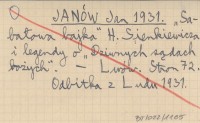 JANÓW Jan 1931. „Sa-
bałowa bajka" H. Sienkiewicza
i legendy o „Dziwnych sądach
bożych". — Lwów. Stron 72.
Odbitka z Ludu 1931.